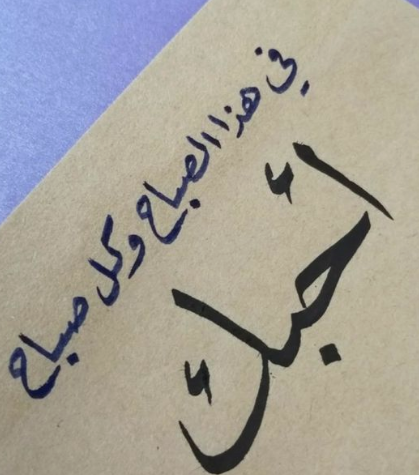 في هذا الصباح وكل صباح
أحبك